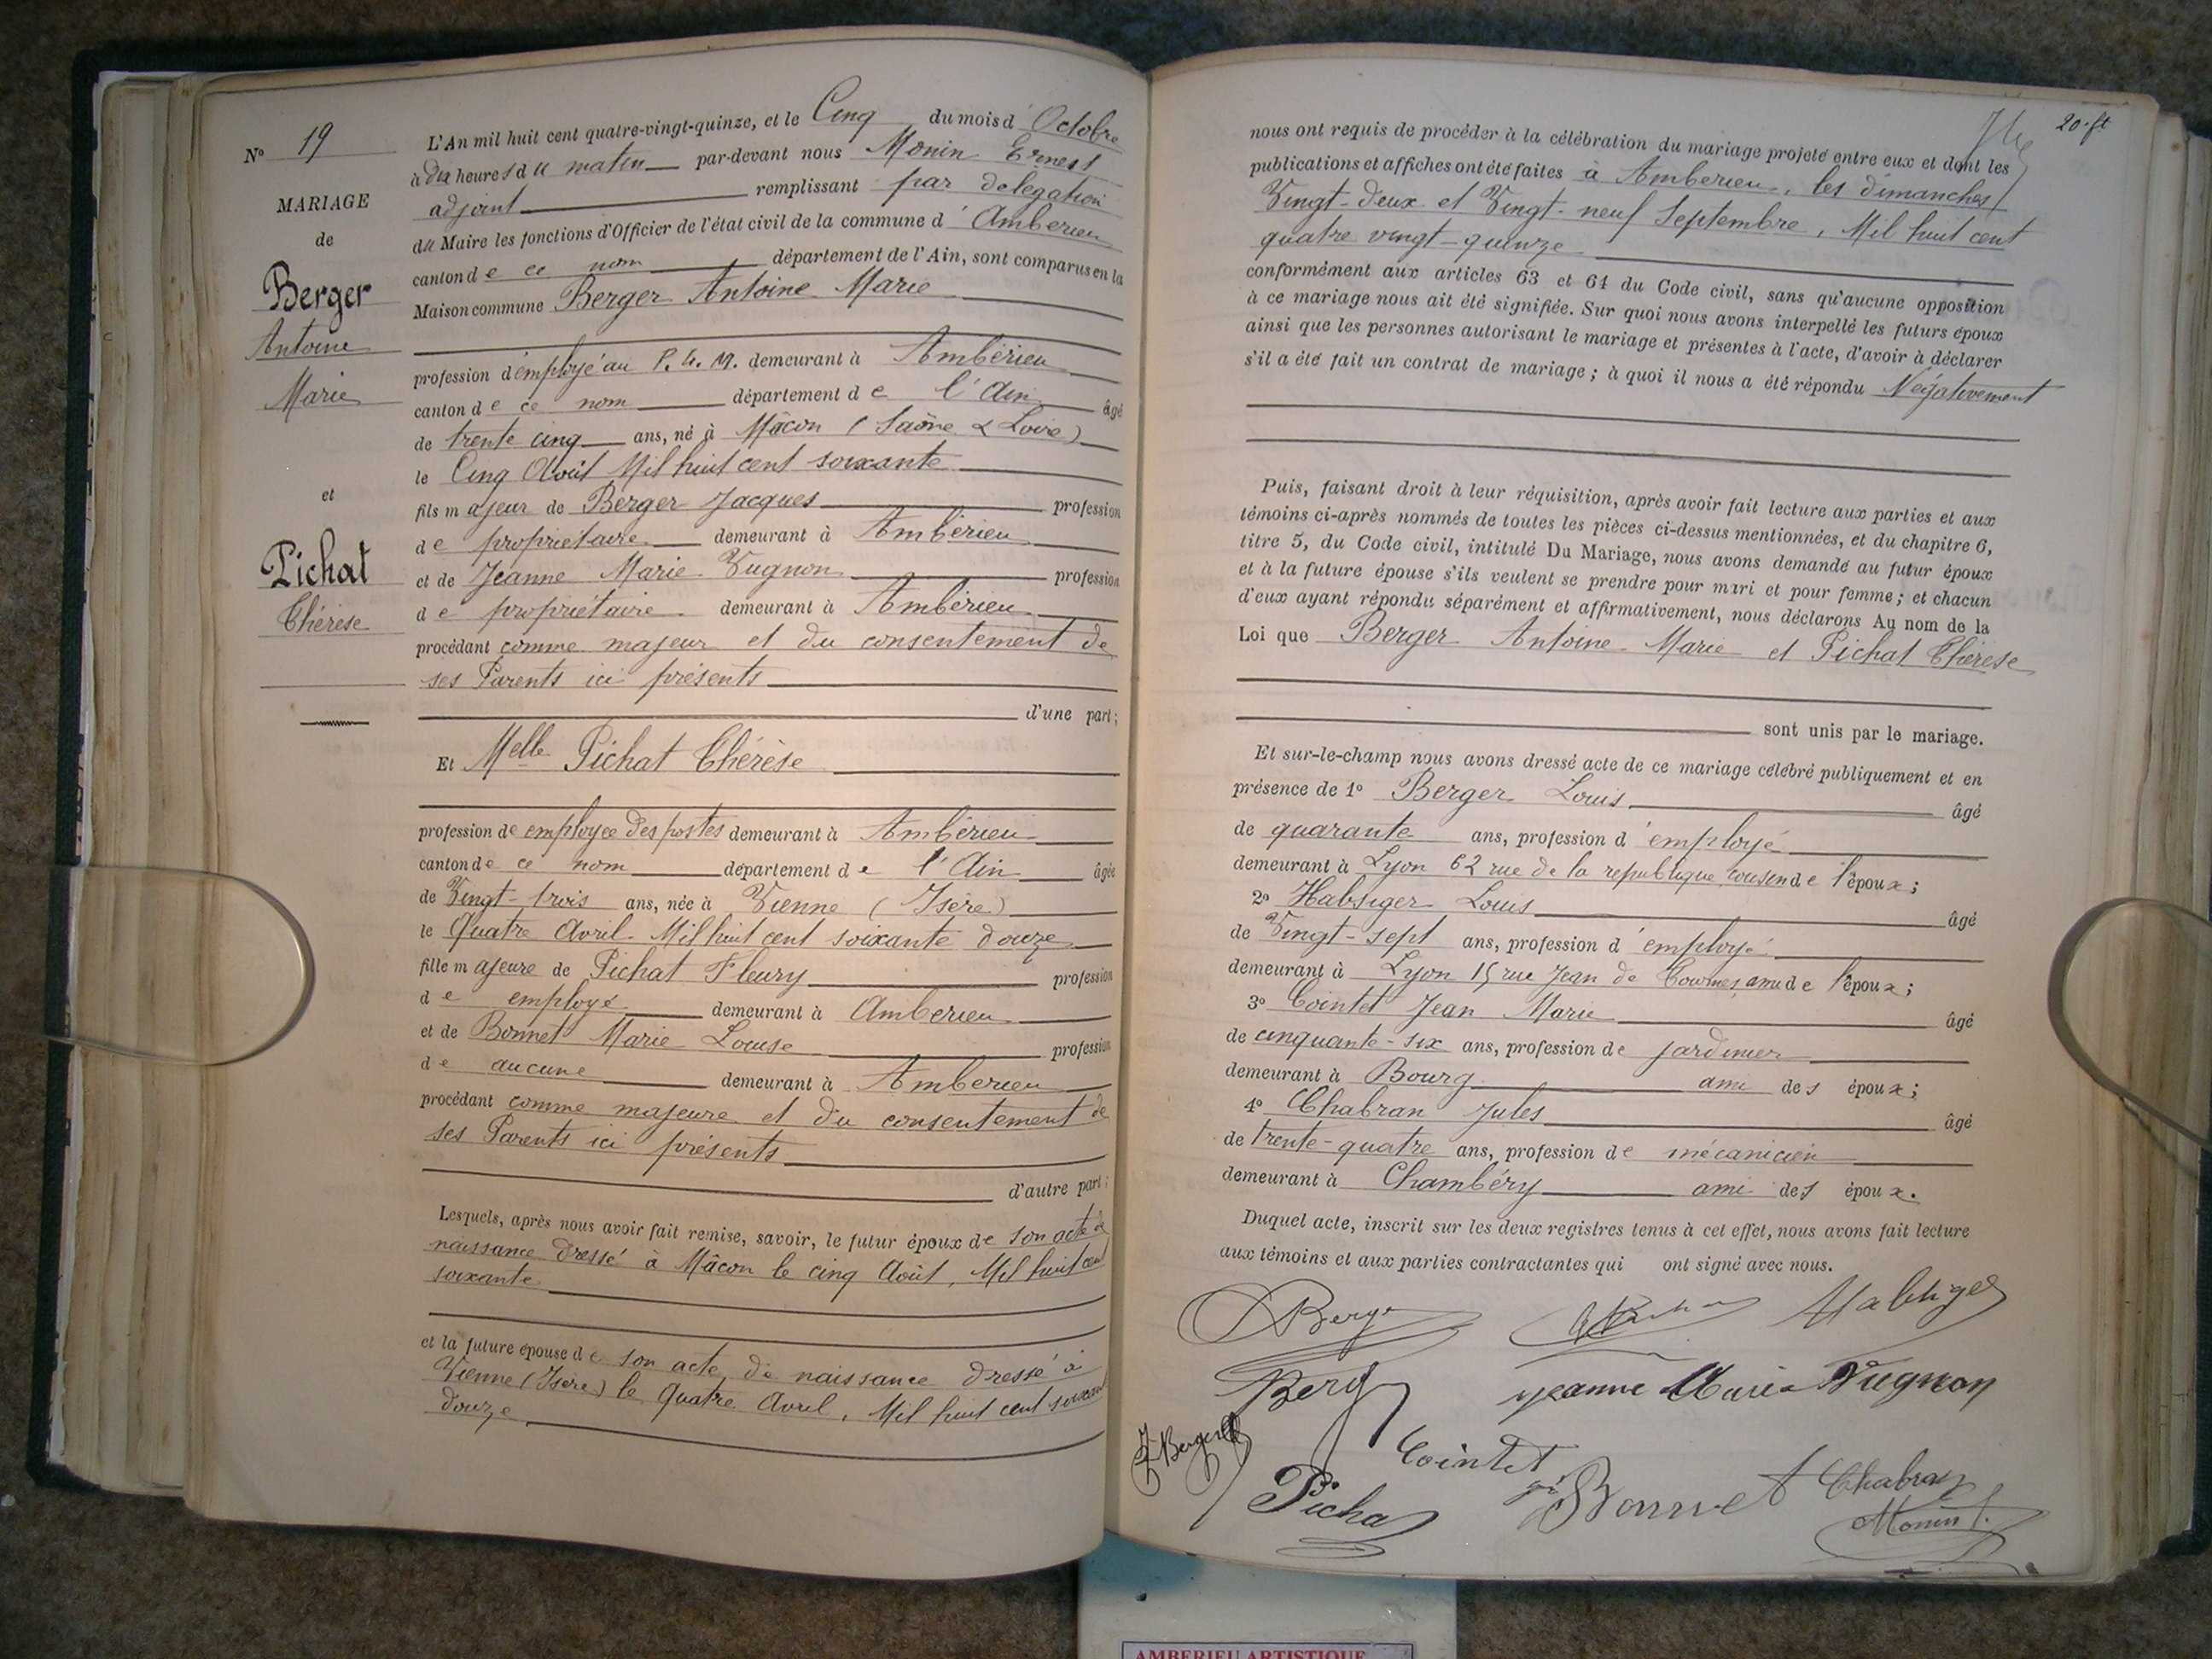 N° 19
MARIAGE
de
Berger
Antoine
Marie
et
Pichat
Thérèse
L'An mil huit cent quatre-vingt-quinze, et le Cinq du mois d'Octobre
à dix heures du matin par-devant nous Monin Ernest
adjoint remplissant par delegation
du Maire les fonctions d'Officier de l'état civil de la commune d'Amberieu
canton de ce nom département de l'Ain, sont comparus en la
Maison commune Berger Antoine Marie
profession d'employé au P. L. M. demeurant à Ambérieu
canton de ce nom département de l'Ain âgé
de trente cinq ans, né à Mâcon (Saône & Loire)
le Cinq Août Mil huit cent soixante
fils majeur de Berger Jacques profession
de propriétaire demeurant à Ambérieu
et de Jeanne Marie Vugnon profession
de propriétaire demeurant à Ambérieu
procédant comme majeur et du consentement de
ses Parents ici présents
d'une part;
Et Melle Pichat Thérèse
profession de employée des postes demeurant à Ambérieu
canton de ce nom département de l'Ain âgée
de Vingt-trois ans, née à Vienne (Isère)
le Quatre Avril Mil huit cent soixante douze
fille majeure de Pichat Fleury profession
de employé demeurant à Amberieu
et de Bonnet Marie Louise profession
de aucune demeurant à Amberieu
procédant comme majeure et du consentement de
ses Parents ici présents
d'autre part;
Lesquels, après nous avoir fait remise, savoir, le futur époux de son acte de
naissance dressé à Mâcon le cinq Août, Mil huit cent
soixante
et la future épouse de son acte de naissance dressé à
Vienne (Isère) le Quatre Avril, Mil huit cent soixante
douze
20 ft
nous ont requis de procéder à la célébration du mariage projeté entre eux et dont les
publications et affiches ont été faites à Amberieu, les dimanches
Vingt-deux et Vingt-neuf Septembre, Mil huit cent
quatre vingt-quinze
conformément aux articles 63 et 64 du Code civil, sans qu'aucune opposition
à ce mariage nous ait été signifiée. Sur quoi nous avons interpellé les futurs époux
ainsi que les personnes autorisant le mariage et présentes à l'acte, d'avoir à déclarer
s'il a été fait un contrat de mariage; à quoi il nous a été répondu Négativement
Puis, faisant droit à leur réquisition, après avoir fait lecture aux parties et aux
témoins ci-après nommés de toutes les pièces ci-dessus mentionnées, et du chapitre 6,
titre 5, du Code civil, intitulé Du Mariage, nous avons demandé au futur époux
et à la future épouse s'ils veulent se prendre pour mari et pour femme; et chacun
d'eux ayant répondu séparément et affirmativement, nous déclarons Au nom de la
Loi que Berger Antoine Marie et Pichat Thérèse
sont unis par le mariage.
Et sur-le-champ nous avons dressé acte de ce mariage célébré publiquement et en
présence de 1° Berger Louis âgé
de quarante ans, profession d'employé
demeurant à Lyon 62 rue de la republique, cousin de l'époux;
2° Habsiger Louis âgé
de Vingt-sept ans, profession d'employé
demeurant à Lyon 15 rue Jean de Tournes, ami de l'époux;
3° Cointet Jean Marie âgé
de cinquante-six ans, profession de jardinier
demeurant à Bourg ami des époux;
4° Chabran Jules âgé
de trente-quatre ans, profession de mécanicien
demeurant à Chambéry ami des époux.
Duquel acte, inscrit sur les deux registres tenus à cet effet, nous avons fait lecture
aux témoins et aux parties contractantes qui ont signé avec nous.
Berger Habsiger
Berger Jeanne Marie Vugnon
Berger Cointet
Pichat Bonnet Chabran
Monin
AMBERIEU ARTISTIQUE